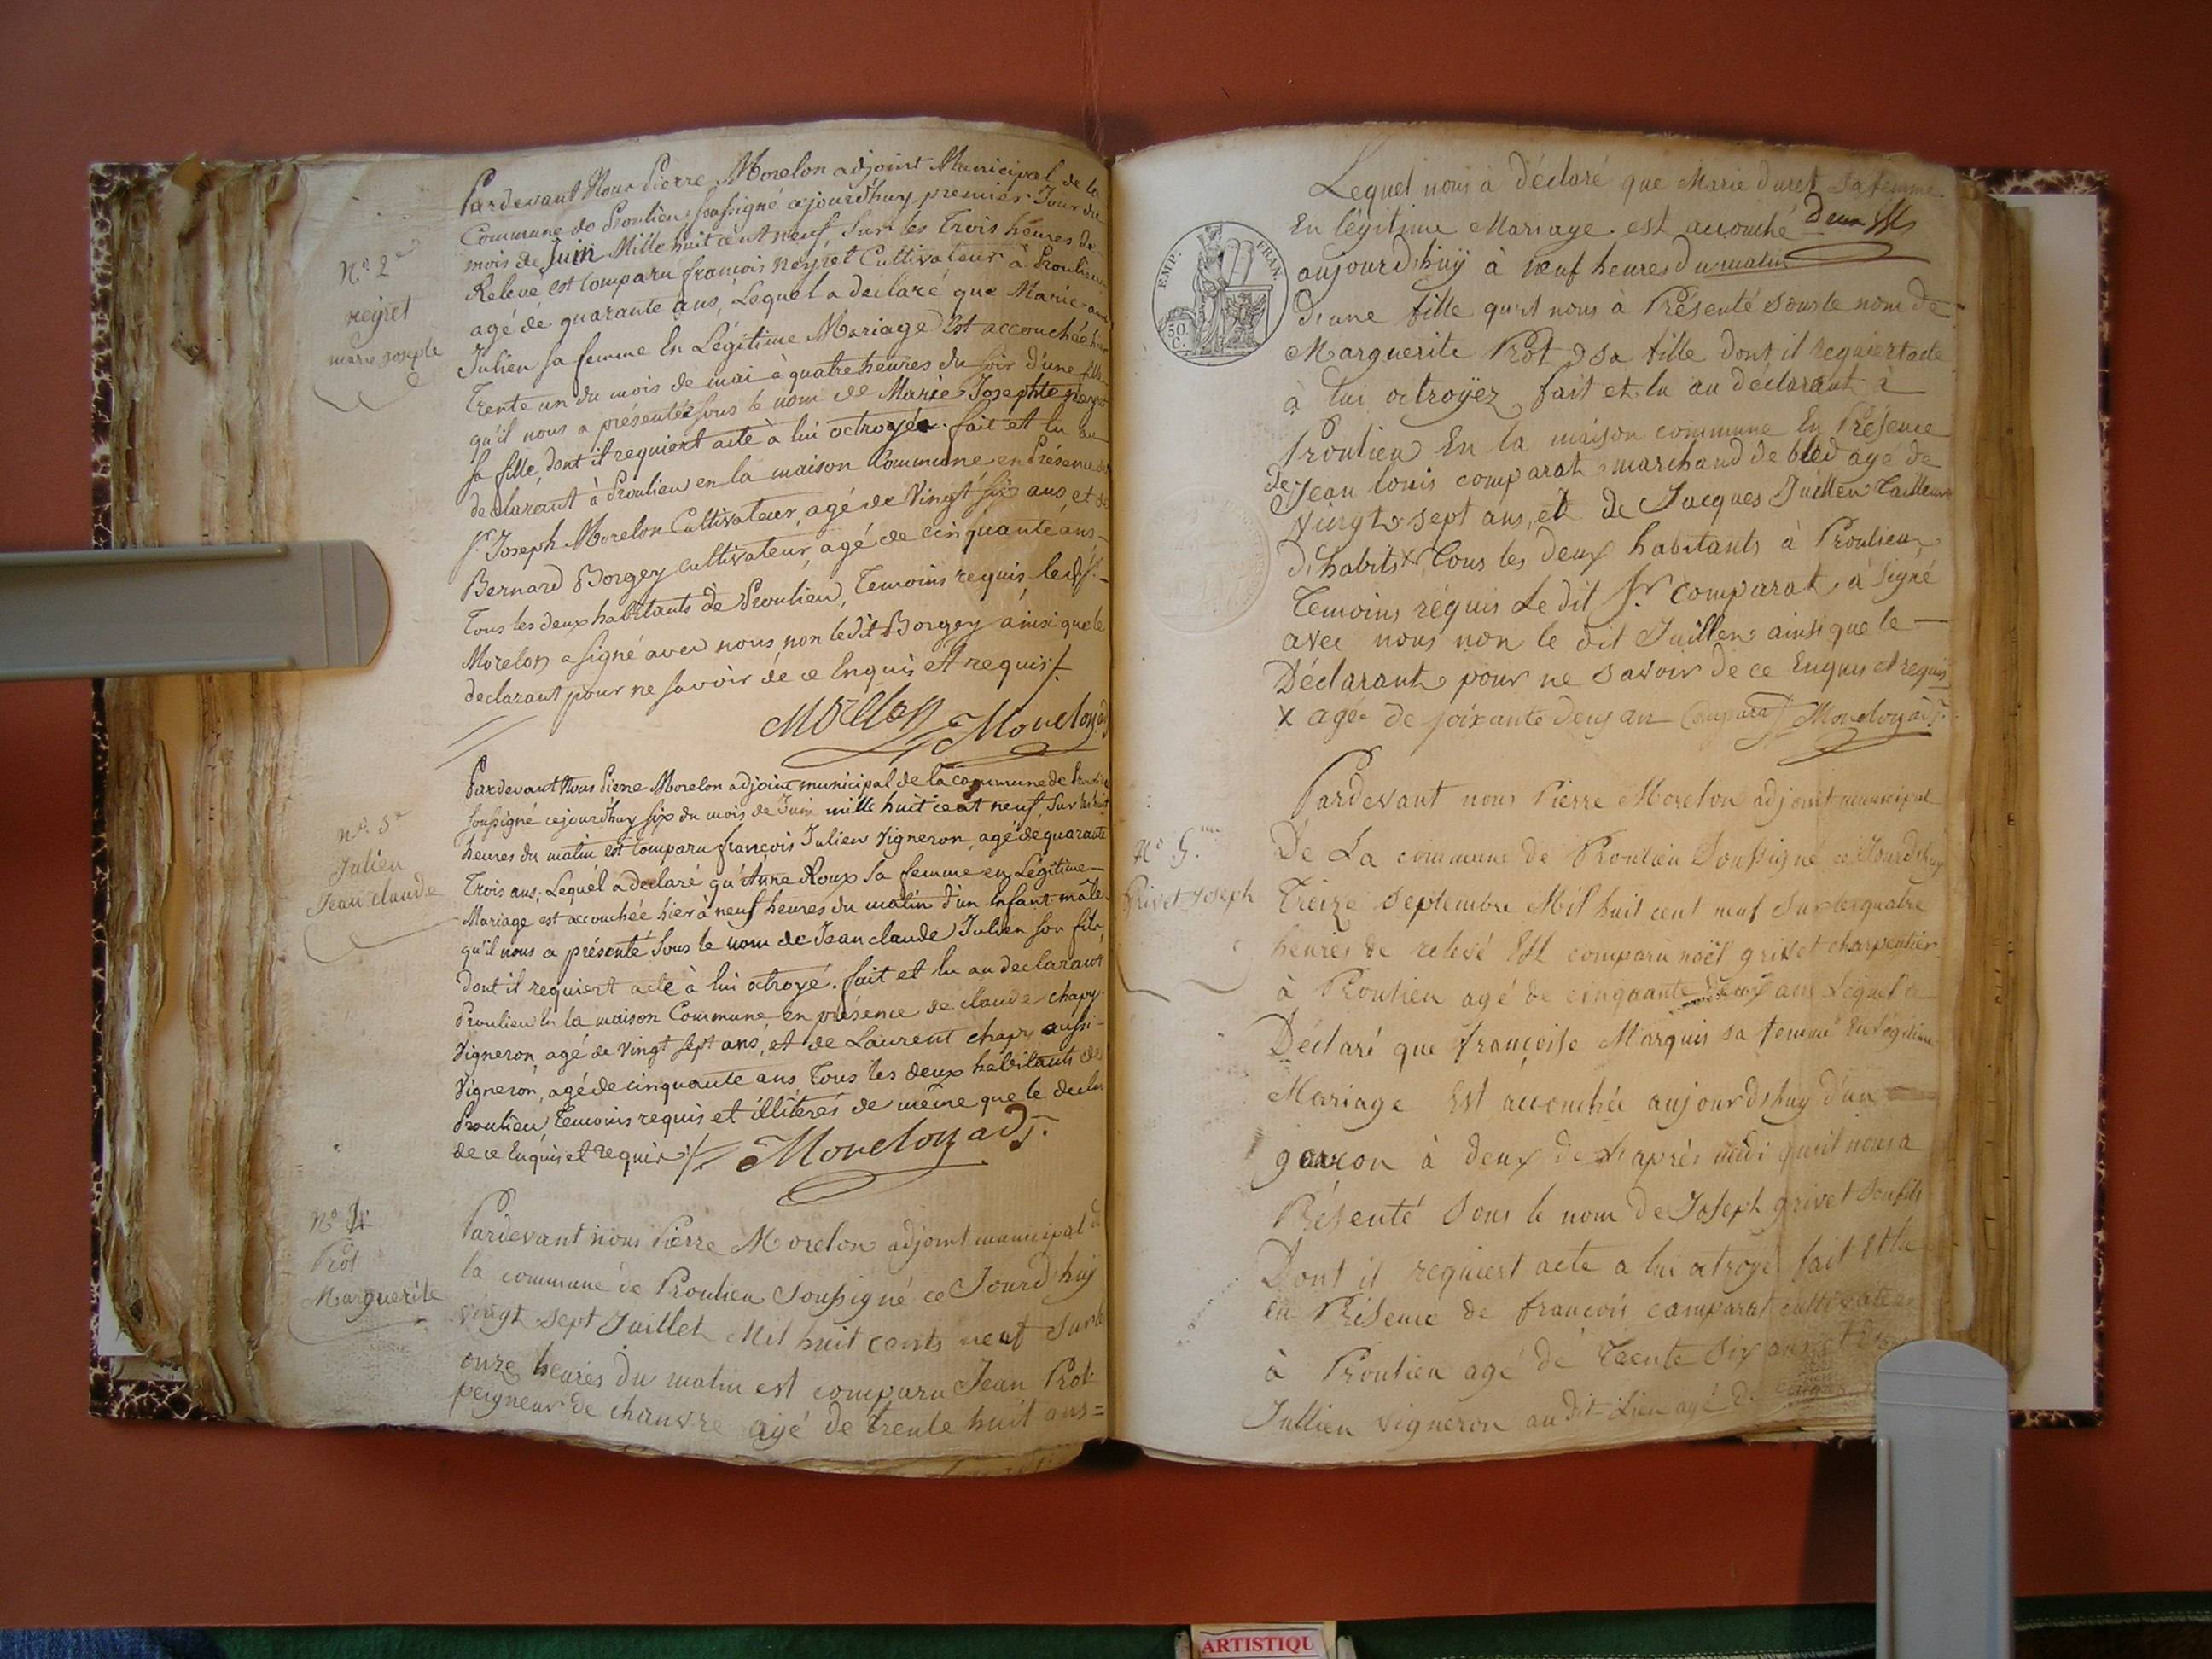 Pardevant Nous Pierre Morelon adjoint Municipal de la
Commune de Proulieu, soussigné cejourd'huy premier Jour du
mois de Juin Mille huit cent neuf, Sur les Trois heures de
Relevé est Comparu françois Neyret Cultivateur à Proulieu
agé de quarante ans, Lequel a declaré que Marie-
Julien sa femme En Légitime Mariage Est accouchée hier
Trente un du mois de mai à quatre heures du soir d'une fille
qu'il nous a présentée sous le nom de Marie Josephte Neyret
sa fille, dont il requiert acte à lui octroyé. fait et lu au
declarant à Proulieu en la maison Commune en Présence de
Sr. Joseph Morelon Cultivateur, agé de Vingt six ans, et de
Bernard Borgey cultivateur, agé de cinquante ans
Tous les deux habitants de Proulieu, Temoins requis, led. Sr.
Morelon a signé avec nous non ledit Borgey ainsi que le
declarant pour ne savoir de ce Enquis et requis /.
Morelon Morelon adj
N°. 2e
neyret
marie josephe
Pardevant Nous Pierre Morelon adjoint municipal de la commune de Proulieu
soussigné cejourd'huy six du mois de Juin mille huit cent neuf, Sur les huit
heures du matin est Comparu françois Julien Vigneron, agé de quarante
Trois ans; Lequel a declaré qu'Anne Roux sa femme en Légitime
Mariage est accouchée hier à neuf heures du matin d'un Enfant mâle
qu'il nous a présenté Sous le nom de Jean claude Julien son fils,
dont il requiert acte à lui octroyé. fait et lu au declarant
Proulieu En la maison Commune en présence de claude chapy
Vigneron, agé de Vingt sept ans, et de Laurent chapy aussi
Vigneron, agé de cinquante ans, Tous les deux habitants de
Proulieu, Temoins requis et illiterés de même que le declar
de ce Enquis et requis /. Morelon adj.
n°. 3e
Julien
Jean claude
Pardevant nous Pierre Morelon adjoint municipal de
la commune de Proulieu Soussigné ce Jourd'huy
vingt sept Juillet Mil huit cents neuf Sur les
onze heures du matin est comparu Jean Prot
peigneur de chanvre agé de trente huit ans =
N° 4
Prot
Marguerite
EMP. FRAN.
50 C.
Lequel nous à déclaré que Marie duret sa femme
En légitime Mariage est accouché
aujourd'huy à neuf heures du matin
d'une fille qu'il nous à Présenté sous le nom de
Marguerite Prot sa fille dont il requiert acte
à lui octroyez fait et lu au déclarant à
Proulieu En la maison commune En Présence
de Jean louis comparat marchand de bled agé de
vingt sept ans, et de Jacques Juillen tailleur
d'habits x Tous les deux habitants à Proulieu,
Temoins réquis Le dit Sr. comparat à Signé
avec nous non le dit Juillen ainsi que le
Déclarant pour ne savoir de ce Enquis et requis
x agé de soixante deux an Comparat Morelon adj.
Pardevant nous Pierre Morelon adjoint municipal
De La commune de Proulieu Soussigné ce Jourd'huy
Treize Septembre Mil huit cent neuf Sur les quatre
heures de relevé Est comparu noël grivet charpentier
à Proulieu agé de cinquante deux ans Lequel a
Déclaré que françoise Marquis sa femme En légitime
Mariage Est accouchée aujourd'huy d'un
garcon à deux de l'après midi qu'il nous a
Présenté Sous le nom de Joseph grivet son fils
Dont il requiert acte a lui octroyé fait et lu
en Présence de francois comparat cultivateur
à Proulieu agé de Trente Six ans et
Jullien vigneron au dit Lieu agé de
N° 5.
Grivet Joseph
ARTISTIQU